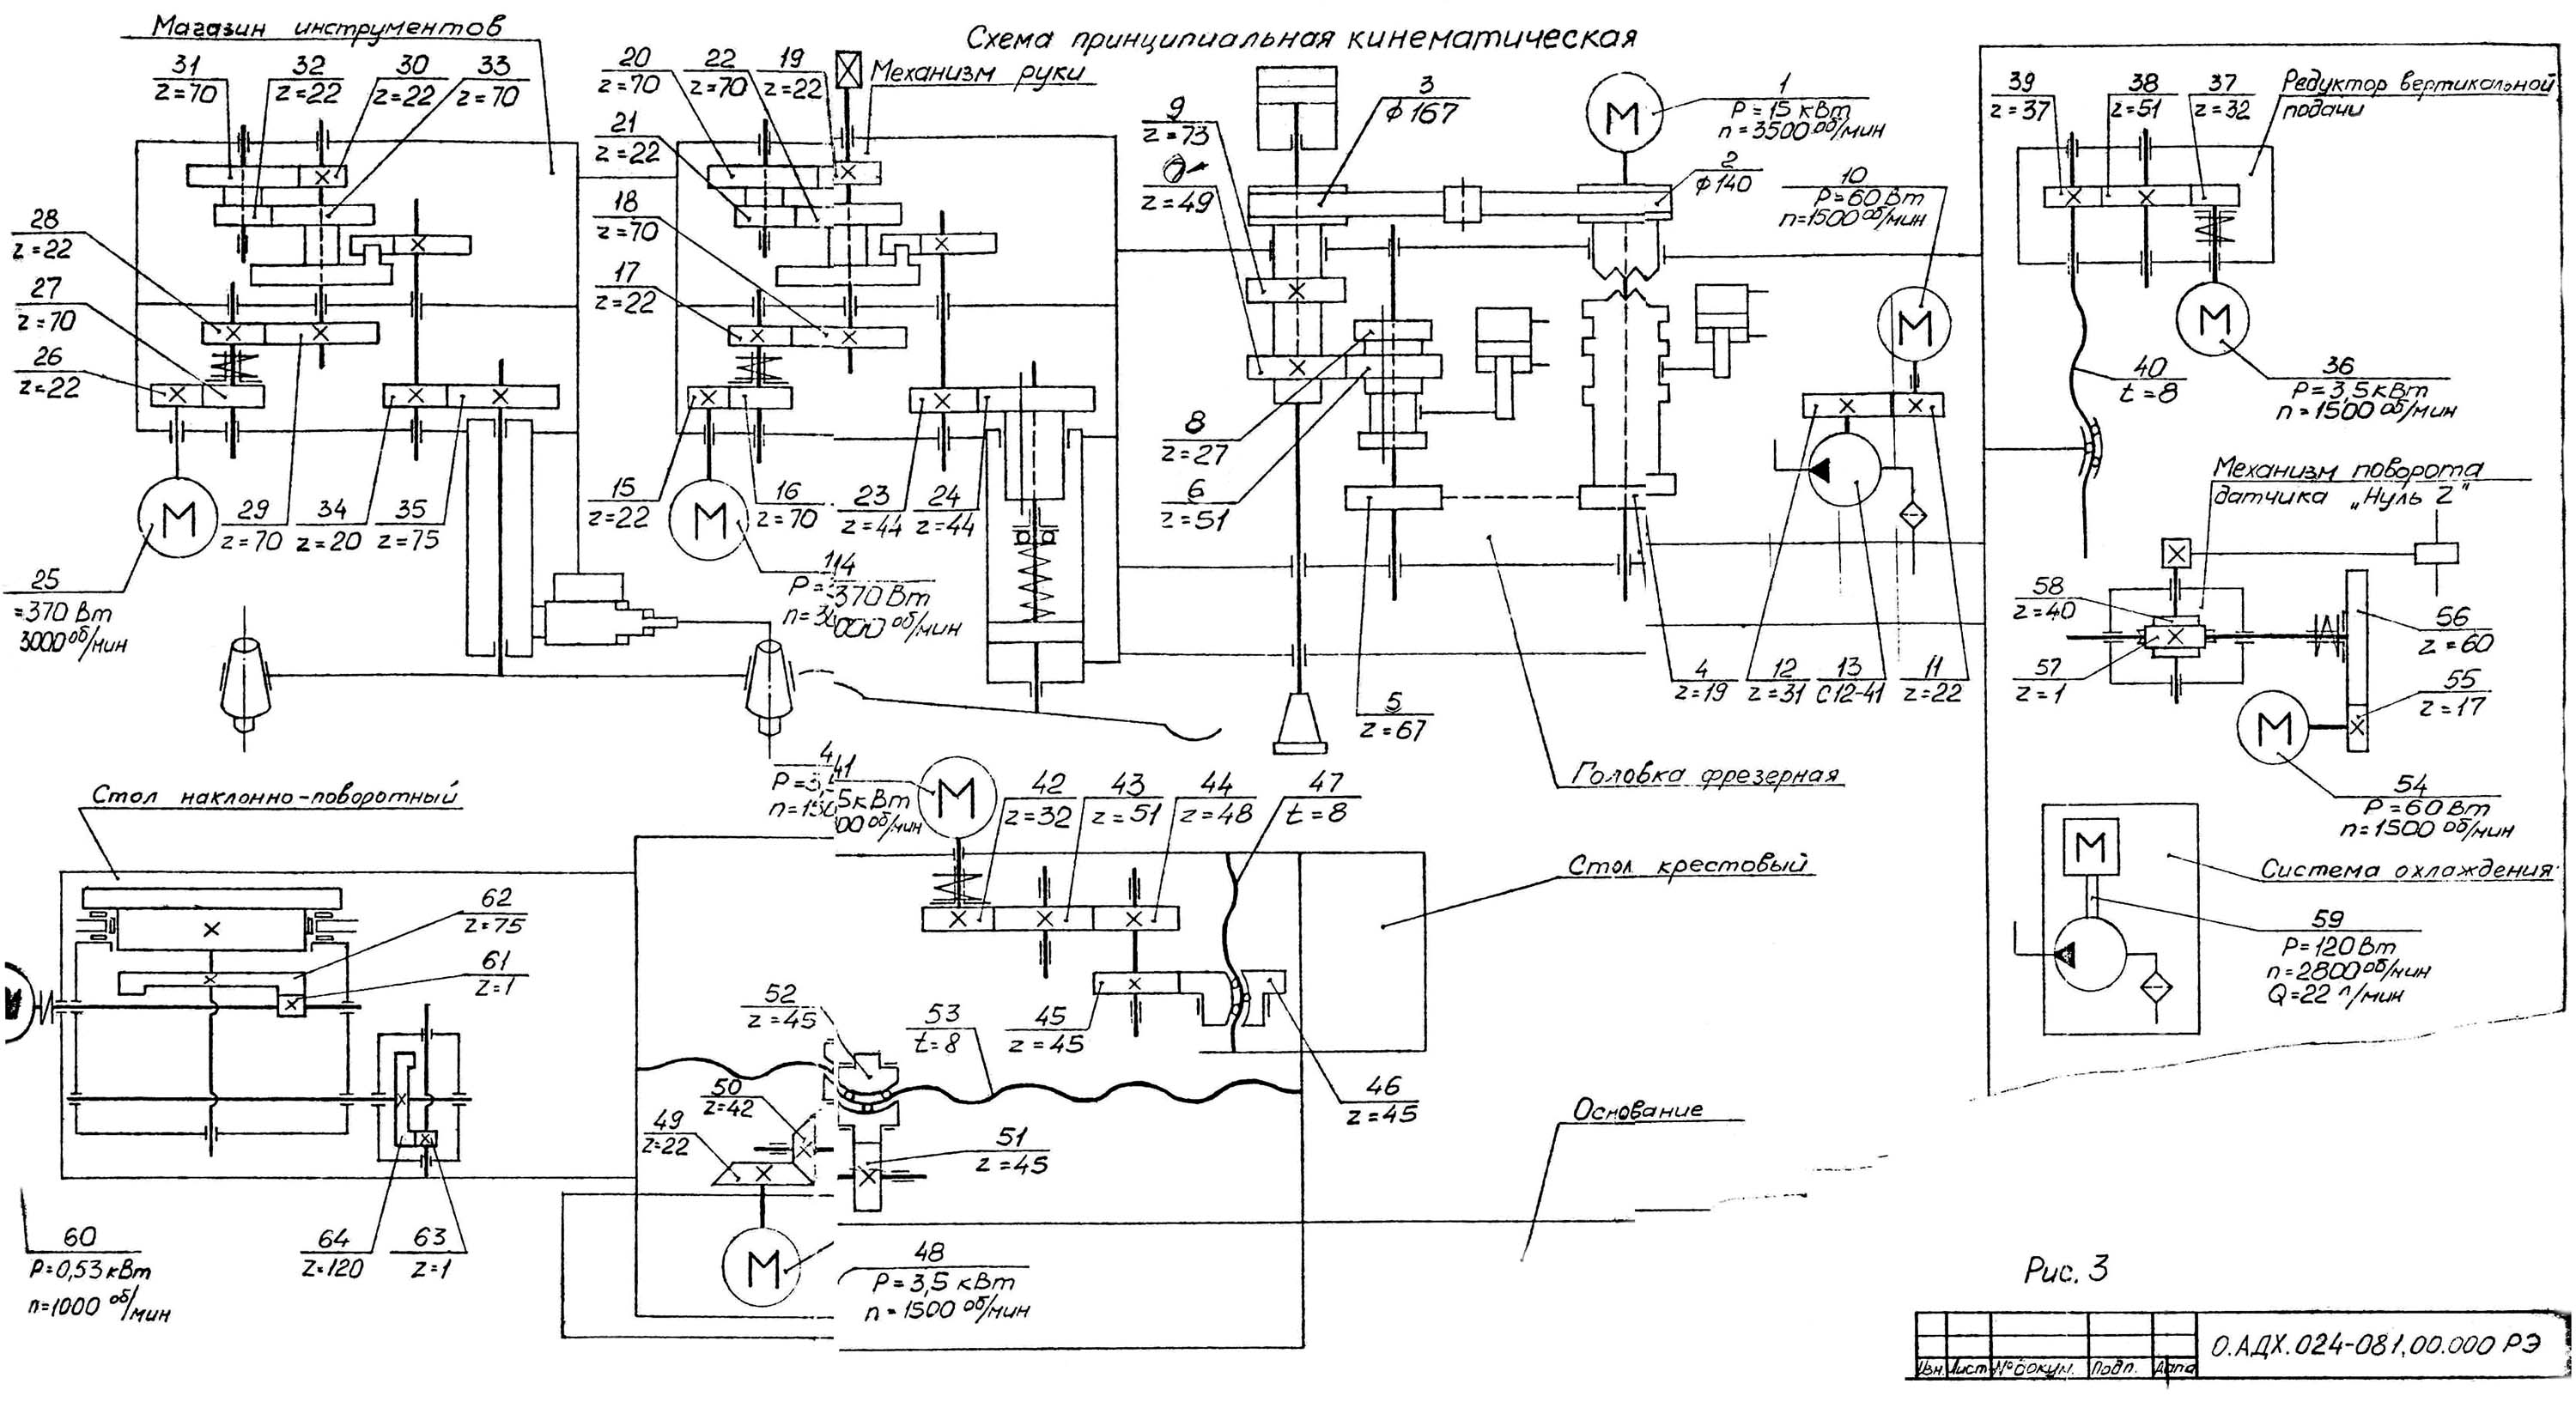 Схема принципиальная кинематическая
Магазин инструментов
31
z=70
32
z=22
30
z=22
33
z=70
28
z=22
27
z=70
26
z=22
29
z=70
34
z=20
35
z=75
M
25
=370 Вт
3000 об/мин
20
z=70
22
z=70
19
z=22
Механизм руки
21
z=22
18
z=70
17
z=22
15
z=22
16
z=70
23
z=44
24
z=44
M
14
P=370 Вт
n=3000 об/мин
9
z=73
z=49
3
ф167
1
P=15 кВт
n=3500 об/мин
M
2
ф140
10
P=60 Вт
n=1500 об/мин
M
8
z=27
6
z=51
5
z=67
4
z=19
12
z=31
13
С12-41
11
z=22
Головка фрезерная
39
z=37
38
z=51
37
z=32
Редуктор вертикальной
подачи
M
40
t=8
36
P=3,5 кВт
n=1500 об/мин
Механизм поворота
датчика „Нуль Z"
58
z=40
57
z=1
56
z=60
55
z=17
M
54
P=60 Вт
n=1500 об/мин
M
Система охлаждения
59
P=120 Вт
n=2800 об/мин
Q=22 л/мин
Стол наклонно-поворотный
62
z=75
61
z=1
M
60
P=0,53 кВт
n=1000 об/мин
64
z=120
63
z=1
41
P=3,5 кВт
n=1500 об/мин
M
42
z=32
43
z=51
44
z=48
47
t=8
Стол крестовый
52
z=45
53
t=8
45
z=45
46
z=45
50
z=42
49
z=22
51
z=45
M
48
P=3,5 кВт
n=1500 об/мин
Основание
Рис. 3
О.АДХ.024-081.00.000 РЭ
Изм. Лист № докум. Подп. Дата